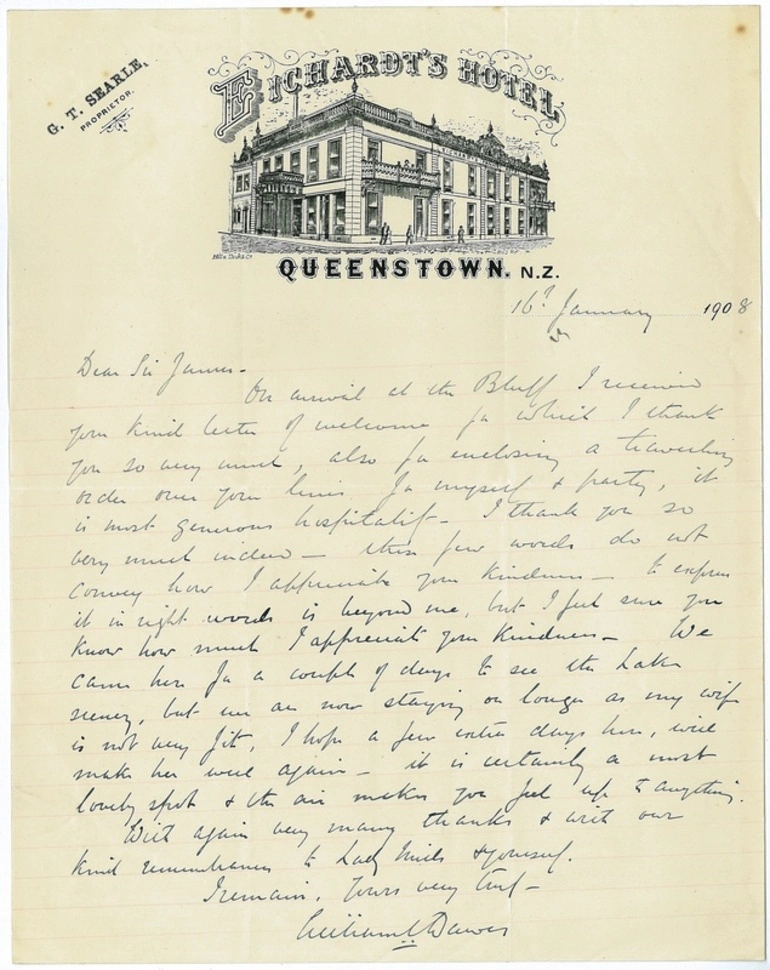 G. T. SEARLE,
PROPRIETOR.
EICHARDT'S HOTEL
EICHARDT'S
QUEENSTOWN. N.Z.
16? January 1908
Dear Sir James -
On arrival at the Bluff I received
your kind letter of welcome for which I thank
you so very much, also for enclosing a travelling
order over your lines for myself & party, it
is most generous hospitality - I thank you so
very much indeed - these few words do not
convey how I appreciate your kindness - to express
it in right words is beyond me, but I feel sure you
know how much I appreciate your kindness - We
came here for a couple of days to see the Lake
scenery, but we are now staying on longer as my wife
is not very fit, I hope a few extra days here, will
make her well again - it is certainly a most
lovely spot & the air makes you feel up to anything.
With again very many thanks & with our
kind remembrances to Lady Mills & yourself.
I remain, Yours very truly -
William Dawes